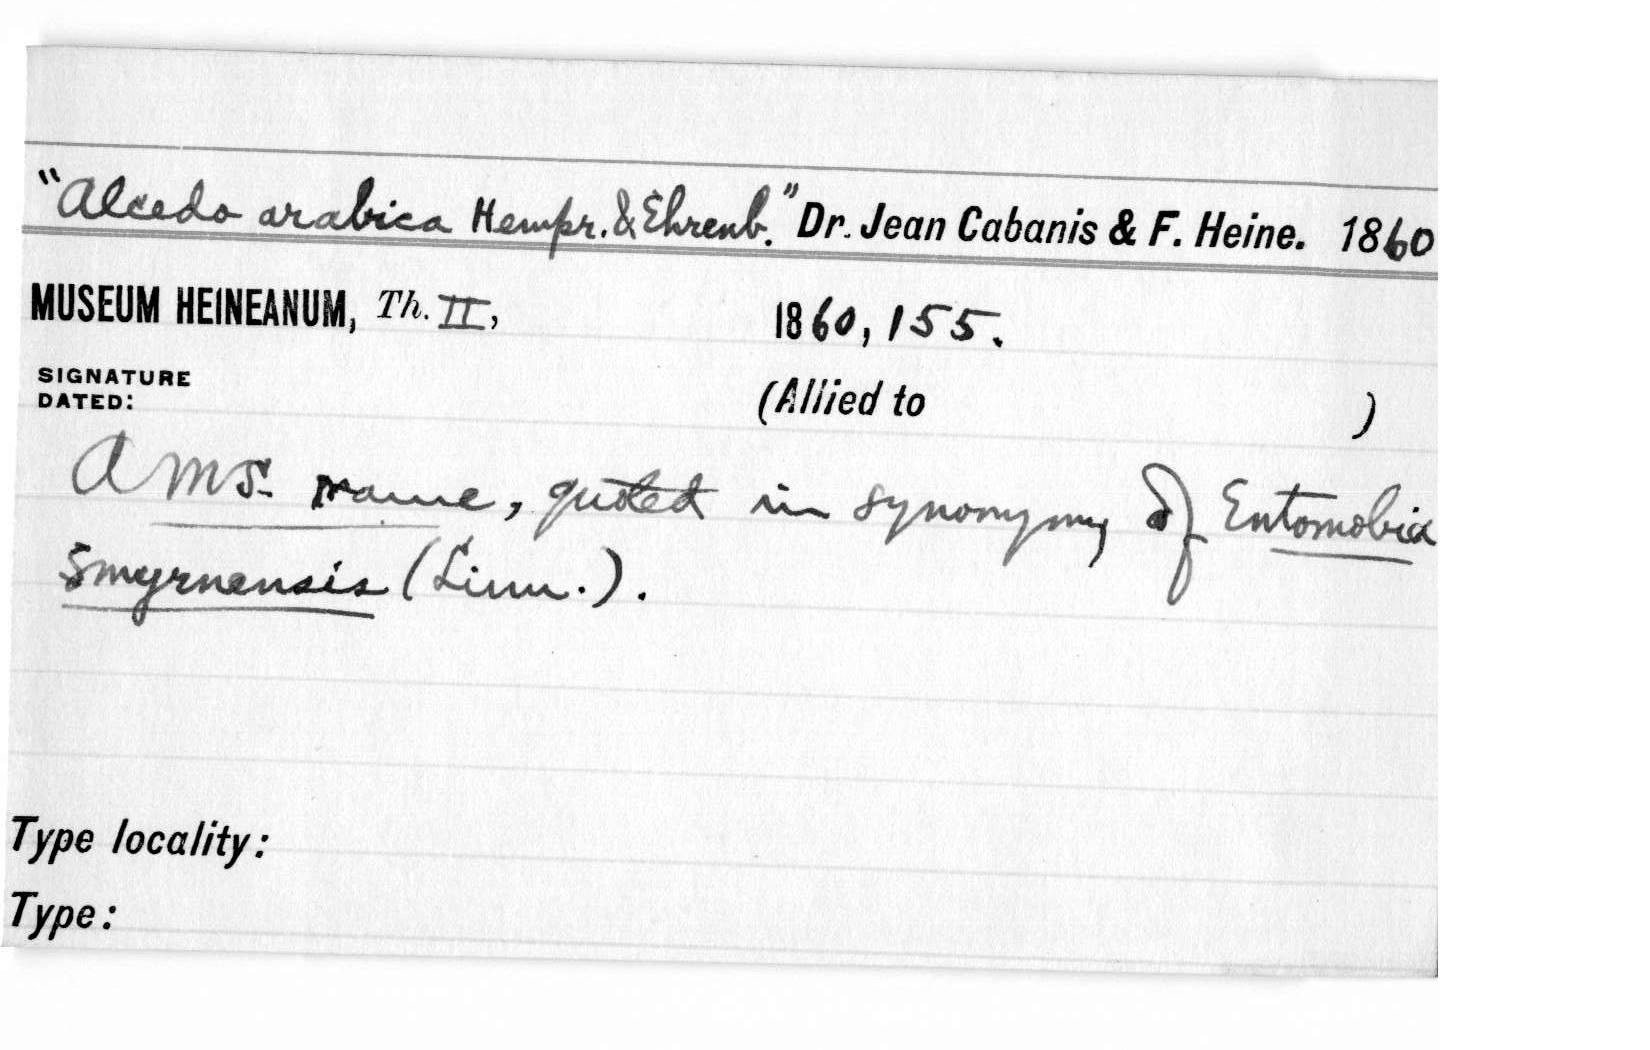 "Alcedo arabica Hempr. & Ehrenb." Dr. Jean Cabanis & F. Heine. 1860
MUSEUM HEINEANUM, Th. II, 1860, 155.
SIGNATURE
DATED:
(Allied to )
A MS. name, quoted in synonymy of Entomobia
Smyrnensis (Linn.).
Type locality:
Type: